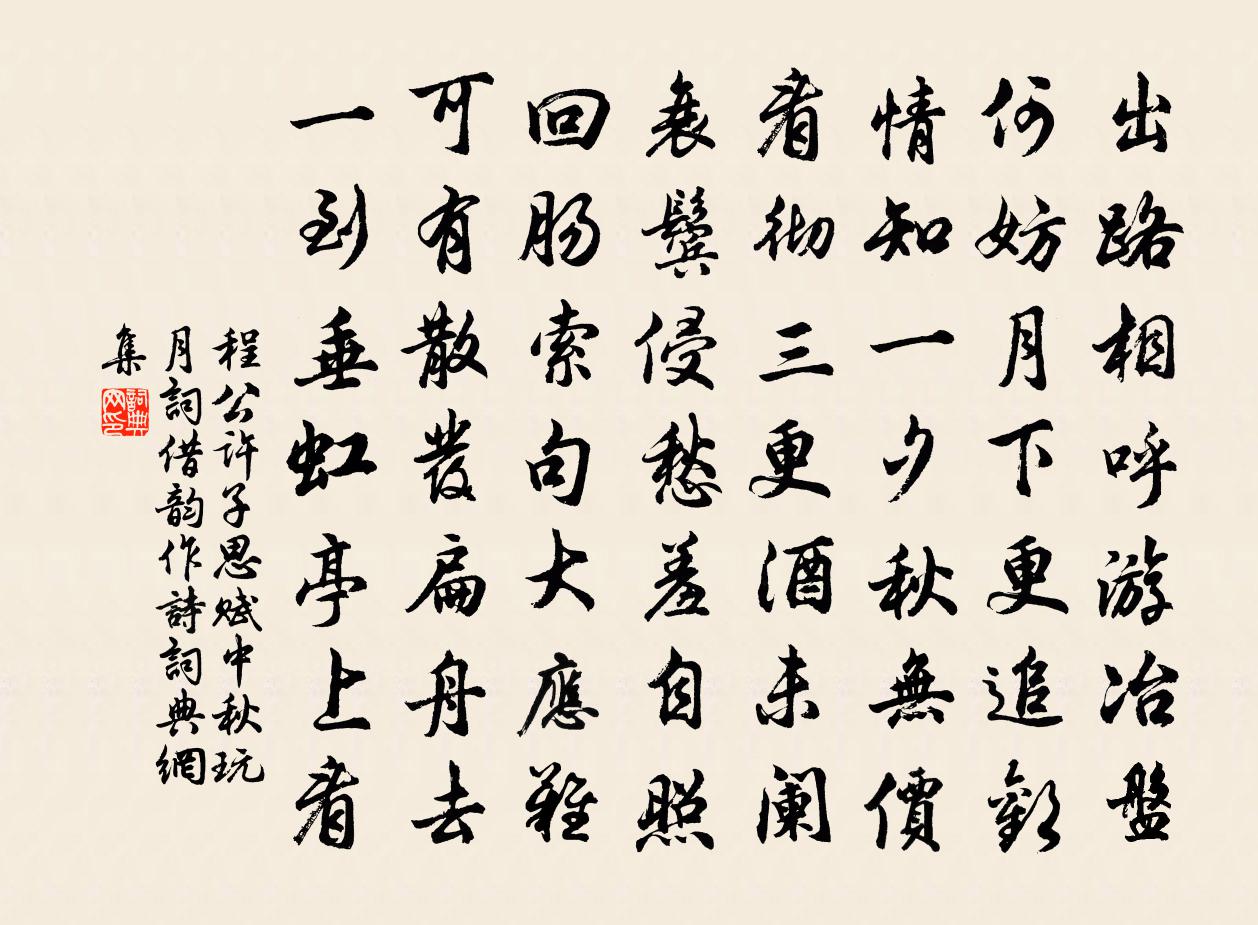 出路相呼游冶盤
何妨月下更追歡
情知一夕秋無價
看徹三更酒未闌
衰鬢侵愁羞自照
回腸索句大應難
可有散發扁舟去
一到垂虹亭上看
程公許子思賦中秋玩
月詞借韵作詩詞典網
集
詞典网印